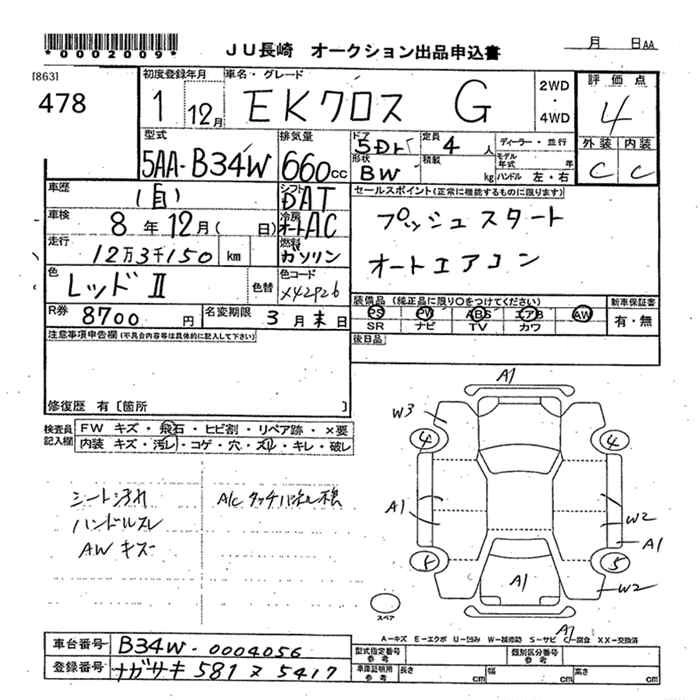 *0002009*
JU長崎 オークション出品申込書
月 日AA
[863]
478
初度登録年月
1 12月
車名・グレード
EKクロス G
2WD
・
4WD
評価点
4
外装 内装
C C
型式
5AA-B34W
排気量
660cc
ドア
5Dr
定員
4人
形状
BW
積載
kg
ディーラー・並行
モデル年式 年
ハンドル 左・右
車歴
(自)
シフト
DAT
セールスポイント(正常に機能するものに限ります)
プッシュスタート
オートエアコン
車検
8年12月( 日)
冷房
オートAC
走行
12万3千150 km
燃料
ガソリン
色
レッドII
色替
色コード
X42P26
R券
8700円
名変期限
3月末日
装備品(純正品に限り○をつけてください)
PS PW ABS エアB AW
SR ナビ TV カワ
新車保証書
有・無
後日品
注意事項申告欄(不具合内容等は具体的に記入して下さい)
修復歴 有〔箇所 〕
検査員記入欄
FW キズ・飛石・ヒビ割・リペア跡・×要
内装 キズ・汚レ・コゲ・穴・スレ・キレ・破レ
シート汚れ
ハンドルスレ
AWキズ
A/Cタッチパネル
A1
W3
4 4
A1
W2
A1
5
A1
W2
A1
スペア
A-キズ E-エクボ U-凹み W-補修跡 S-サビ C-腐食 XX-交換済
車台番号
B34W-0004056
登録番号
ナガサキ 581 ス 5417
型式指定番号
参考
類別区分番号
参考
車庫証明用
参考
長さ cm
幅 cm
高さ cm